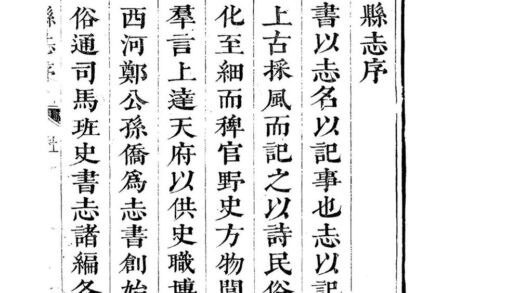 縣志序
書以志名以記事也志以記
上古採風而記之以詩民俗
化至細而稗官野史方物間
羣言上達天府以供史職博
西河鄭公孫僑為志書創始
俗通司馬班史書志諸編各
縣志序